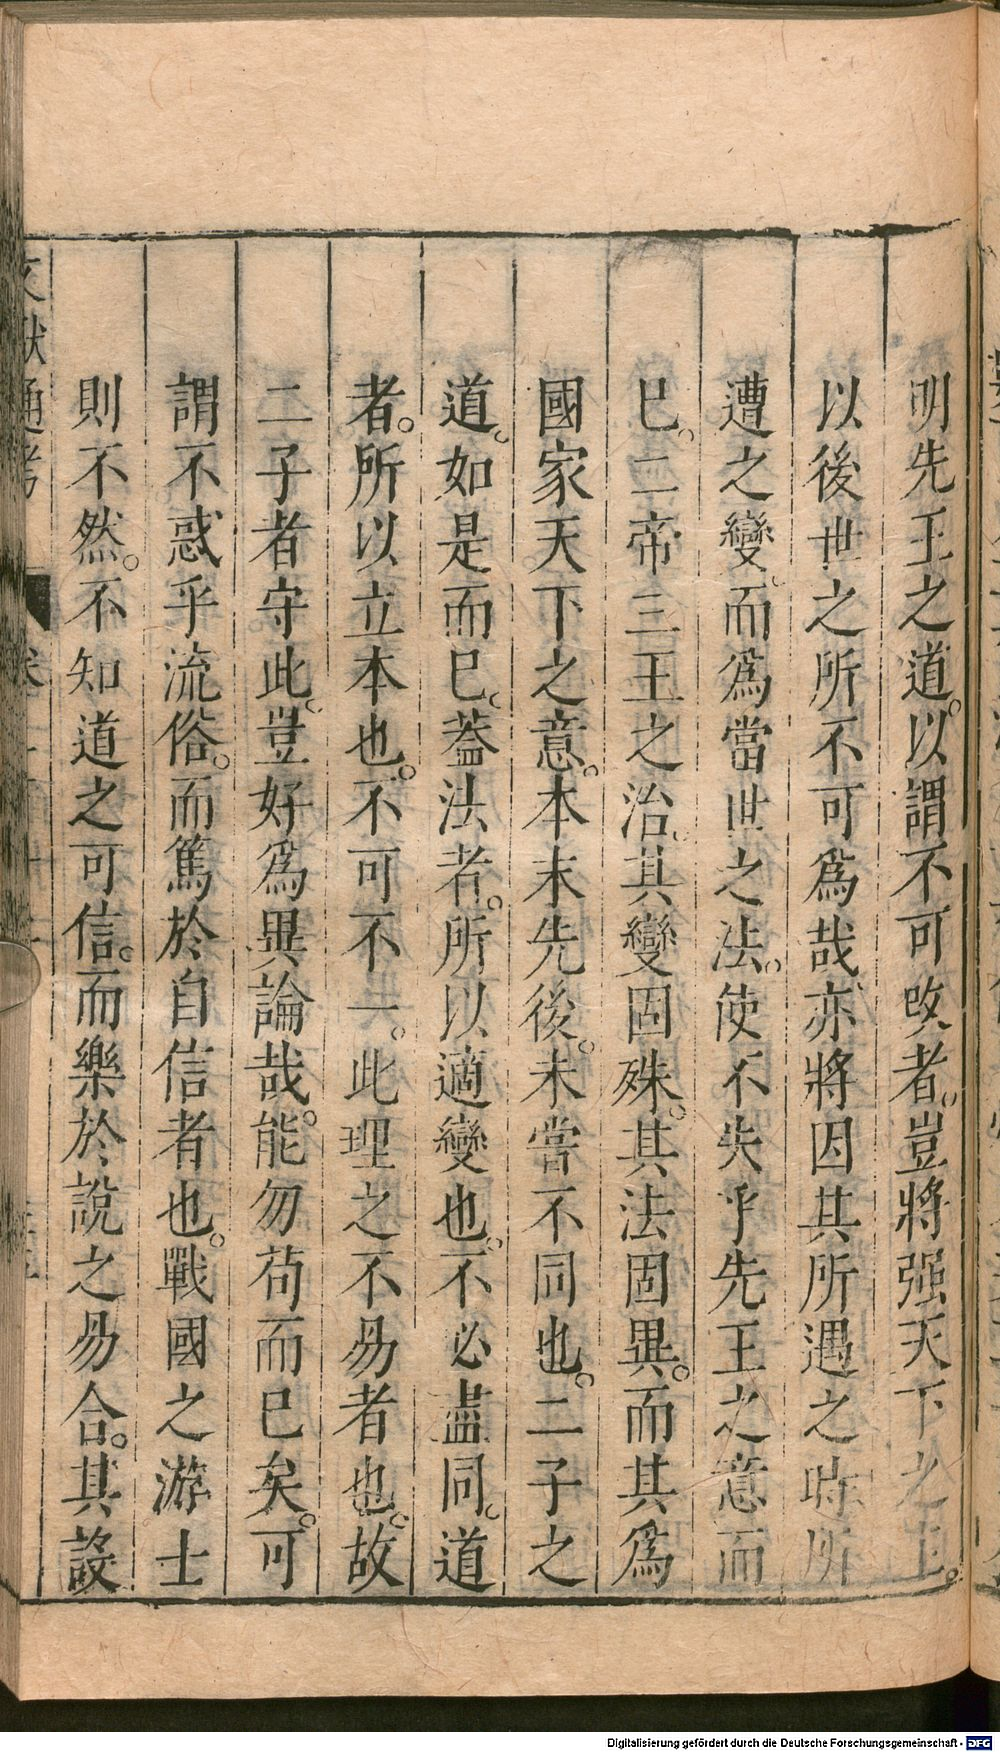 明先王之道。以謂不可改者。豈將强天下之主。
以後世之所不可爲哉亦將因其所遇之時所
遭之變而爲當世之法。使不失乎先王之意而
已。二帝三王之治。其變固殊。其法固異。而其爲
國家天下之意。本末先後。未嘗不同也。二子之
道。如是而已。蓋法者。所以適變也。不必盡同。道
者。所以立本也。不可不一。此理之不易者也。故
二子者守此。豈好爲異論哉。能勿苟而已矣。可
謂不惑乎流俗。而篤於自信者也。戰國之游士
則不然。不知道之可信。而樂於說之易合。其設
文獻通考 卷二百十
Digitalisierung gefördert durch die Deutsche Forschungsgemeinschaft - DFG